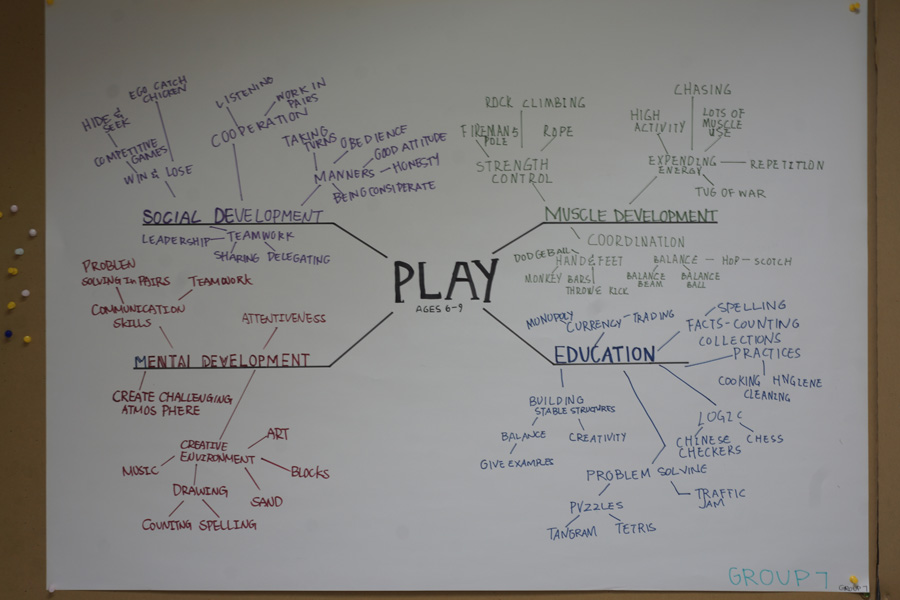 PLAY
AGES 6-9
SOCIAL DEVELOPMENT
HIDE &
SEEK
EGO CATCH
CHICKEN
COMPETITIVE
GAMES
WIN & LOSE
LISTENING
WORK IN
PAIRS
COOPERATION
TAKING
TURNS
OBEDIENCE
GOOD ATTITUDE
MANNERS — HONESTY
BEING CONSIDERATE
LEADERSHIP
TEAMWORK
SHARING DELEGATING
MUSCLE DEVELOPMENT
ROCK CLIMBING
FIREMANS
POLE
ROPE
STRENGTH
CONTROL
CHASING
HIGH
ACTIVITY
LOTS OF
MUSCLE
USE
EXPENDING
ENERGY
REPETITION
TUG OF WAR
COORDINATION
DODGEBALL
HAND & FEET
MONKEY BARS
THROW & KICK
BALANCE — HOP - SCOTCH
BALANCE
BEAM
BALANCE
BALL
MENTAL DEVELOPMENT
PROBLEN
SOLVING In PAIRS
TEAMWORK
COMMUNICATION
SKILLS
ATTENTIVENESS
CREATE CHALLENGING
ATMOS PHERE
CREATIVE
ENVIRONMENT
ART
MUSIC
BLOCKS
DRAWING
SAND
COUNITNG SPELLING
EDUCATION
MONOPOLY
CURRENCY - TRADING
SPELLING
FACTS - COUNTING
COLLECTIONS
PRACTICES
COOKING HNGIENE
CLEANING
BUILDING
STABLE STRUCTURES
BALANCE
CREATIVITY
GIVE EXAMPLES
LOGIC
CHINESE
CHECKERS
CHESS
PROBLEM SOLVINE
PUZZLES
TRAFFIC
JAM
TANGRAM
TETRIS
GROUP 7
GROUP 7